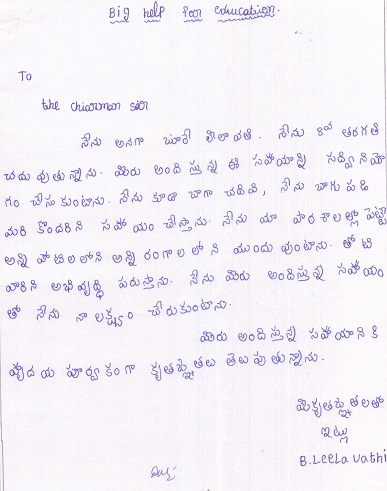 Big help for education.
To
the chairman sar
నేను అనగా బూరే లీలావతి. నేను 8వ తరగతి
చదువుతున్నాను. మీరు అందిస్తున్న ఈ సహాయాన్ని సద్వినియో
గం చేసుకుంటాను. నేను కూడా బాగా చదివి, నేను బాగుపడి
మరి కొందరిని సహాయం చేస్తాను. నేను మా పాఠశాలల్లో పెట్టే
అన్ని పోటిలలోని అన్ని రంగాలలోని ముందు వుంటాను. తోటి
వారిని అభివృద్ధి పరుస్తాను. నేను మీరు అందిస్తున్న సహాయం
తో నేను నా లక్ష్యం చేరుకుంటాను.
మీరు అందిస్తున్న సహాయానికి
హృదయ పూర్వకంగా కృతజ్ఞతలు తెలుపుతున్నాను.
మీకృతజ్ఞతలతో
ఇట్లు
B.Leela vathi